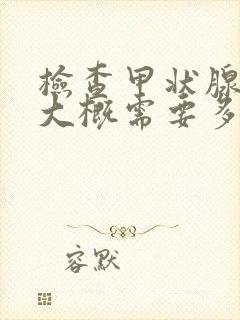 檢查甲状腺
大概需要多
容默